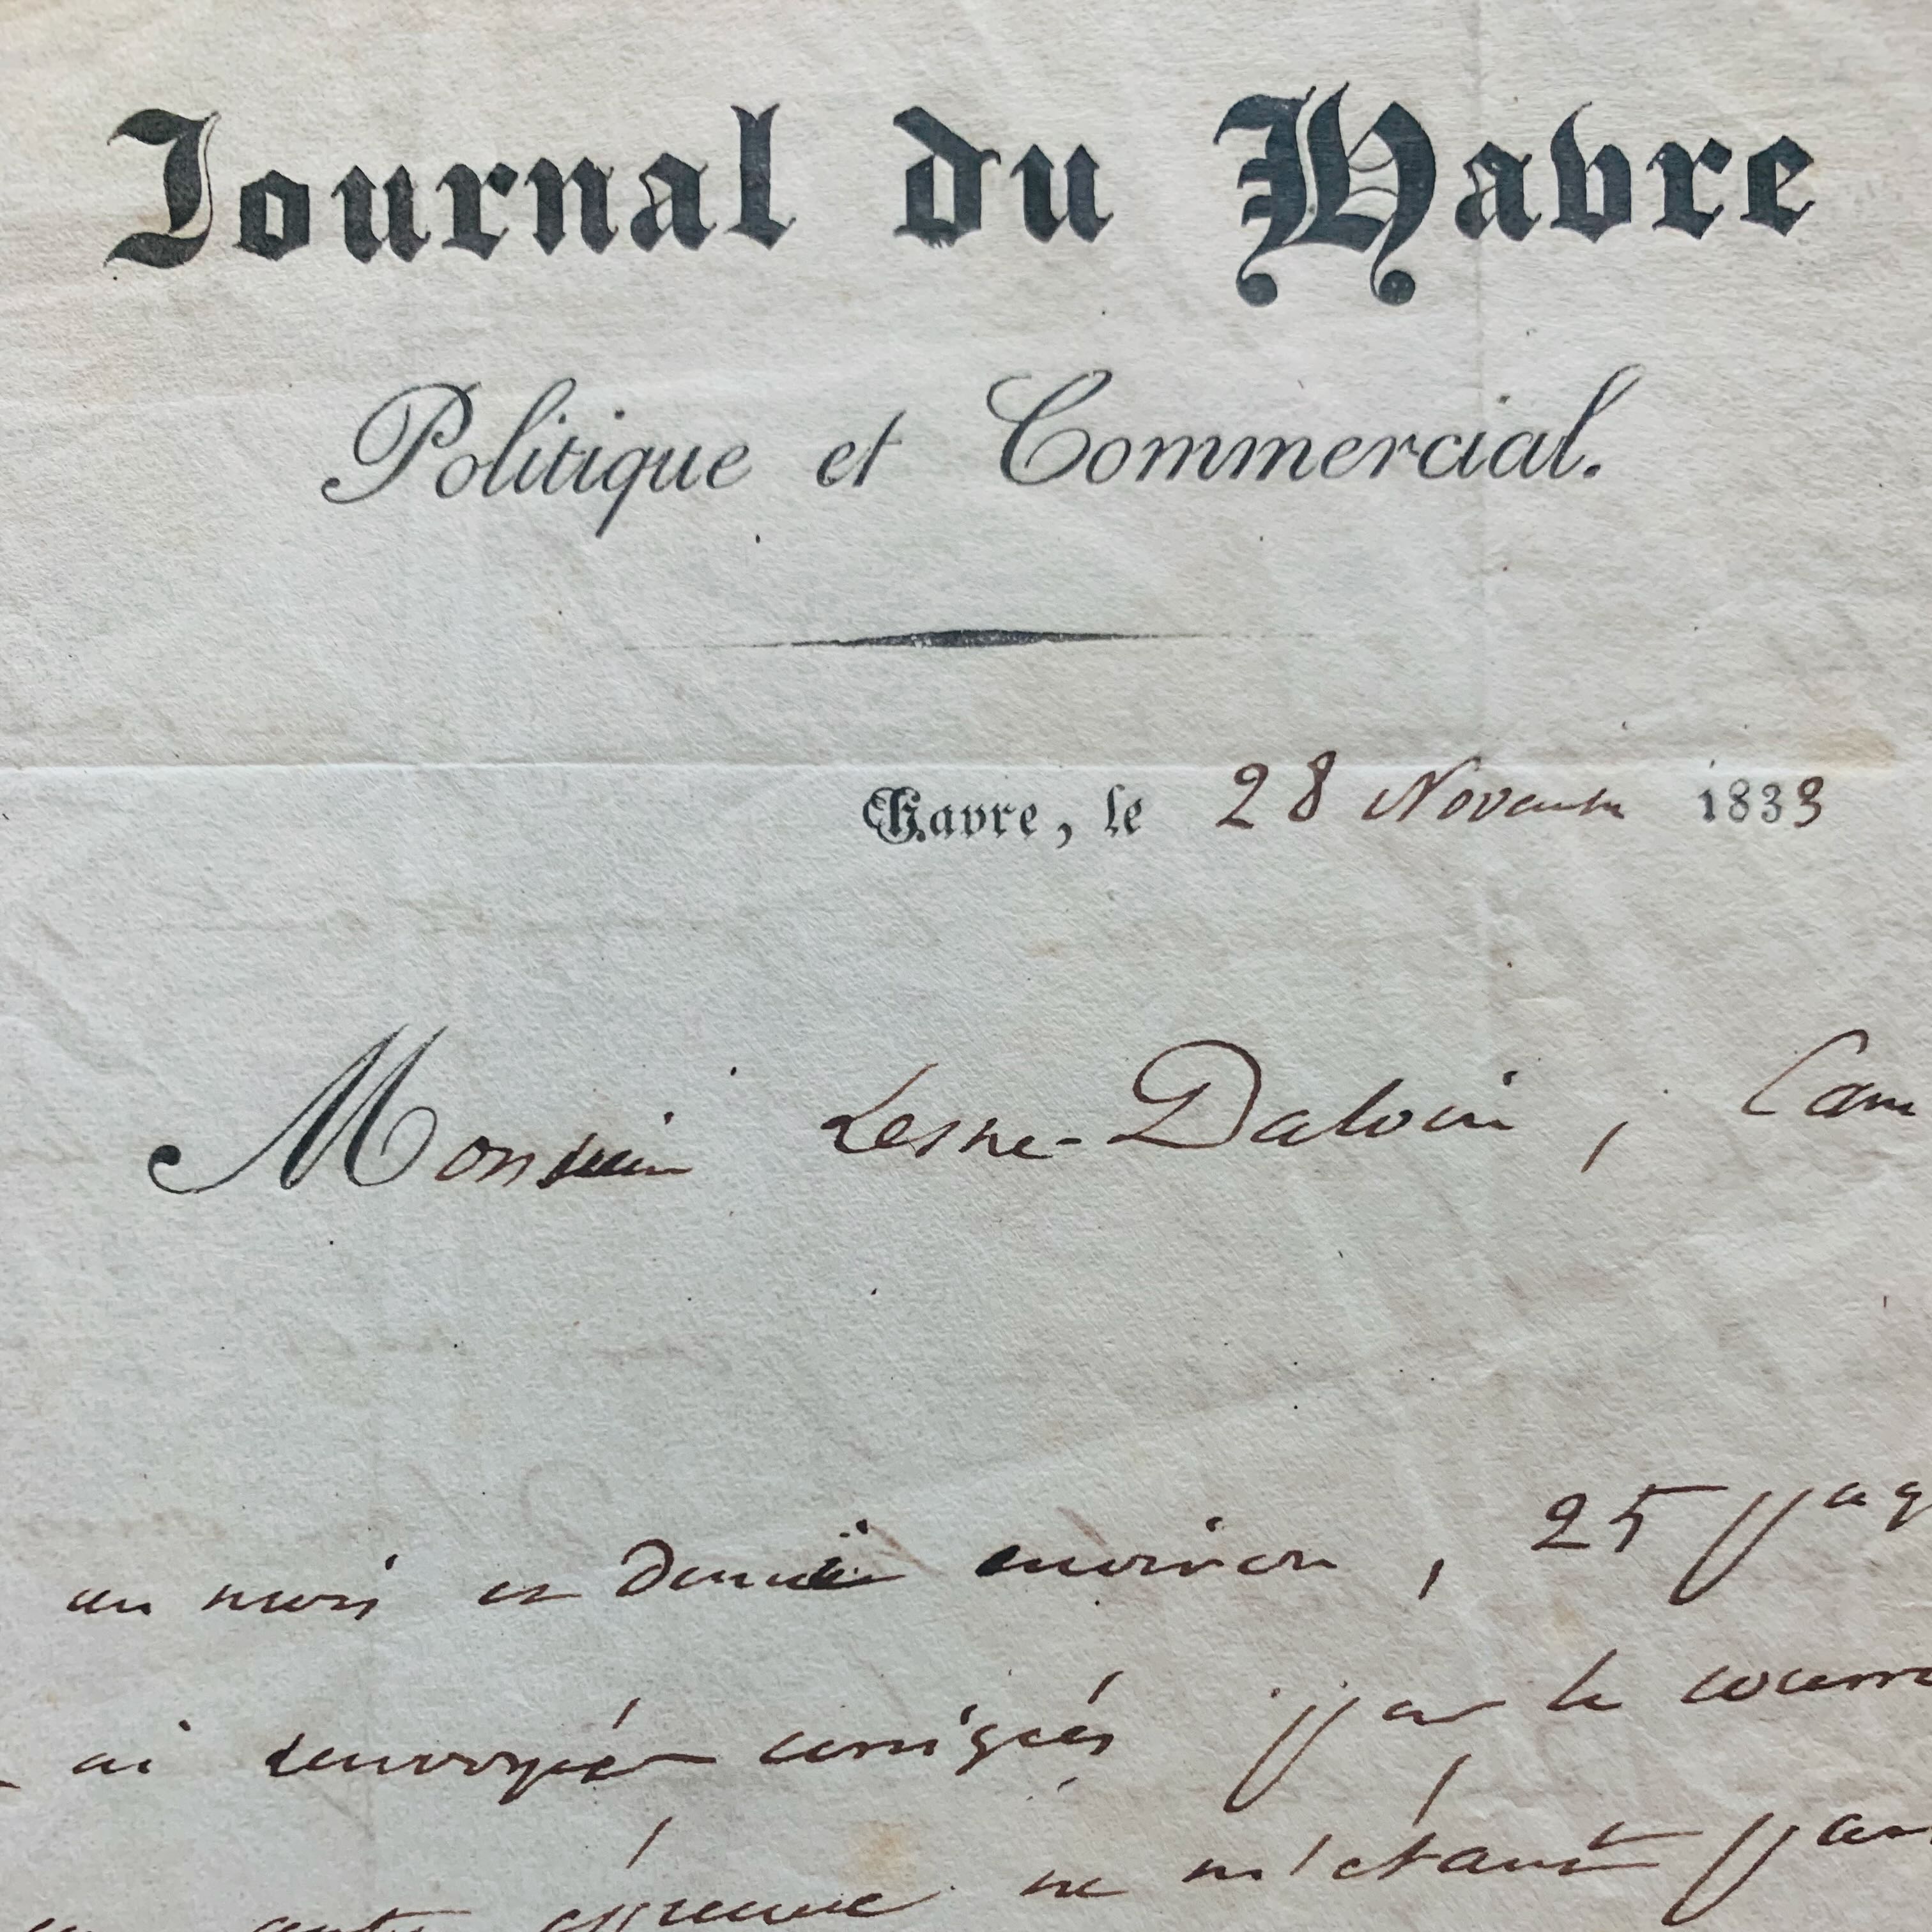 Journal du Havre
Politique et Commercial.
Havre, le 28 Novembre 1833
Monsieur Lesne-Daloin, Cam
un mois et demi environ, 25 pag
ai renvoyées corrigées par le courr
autre épreuve ne m'étant par